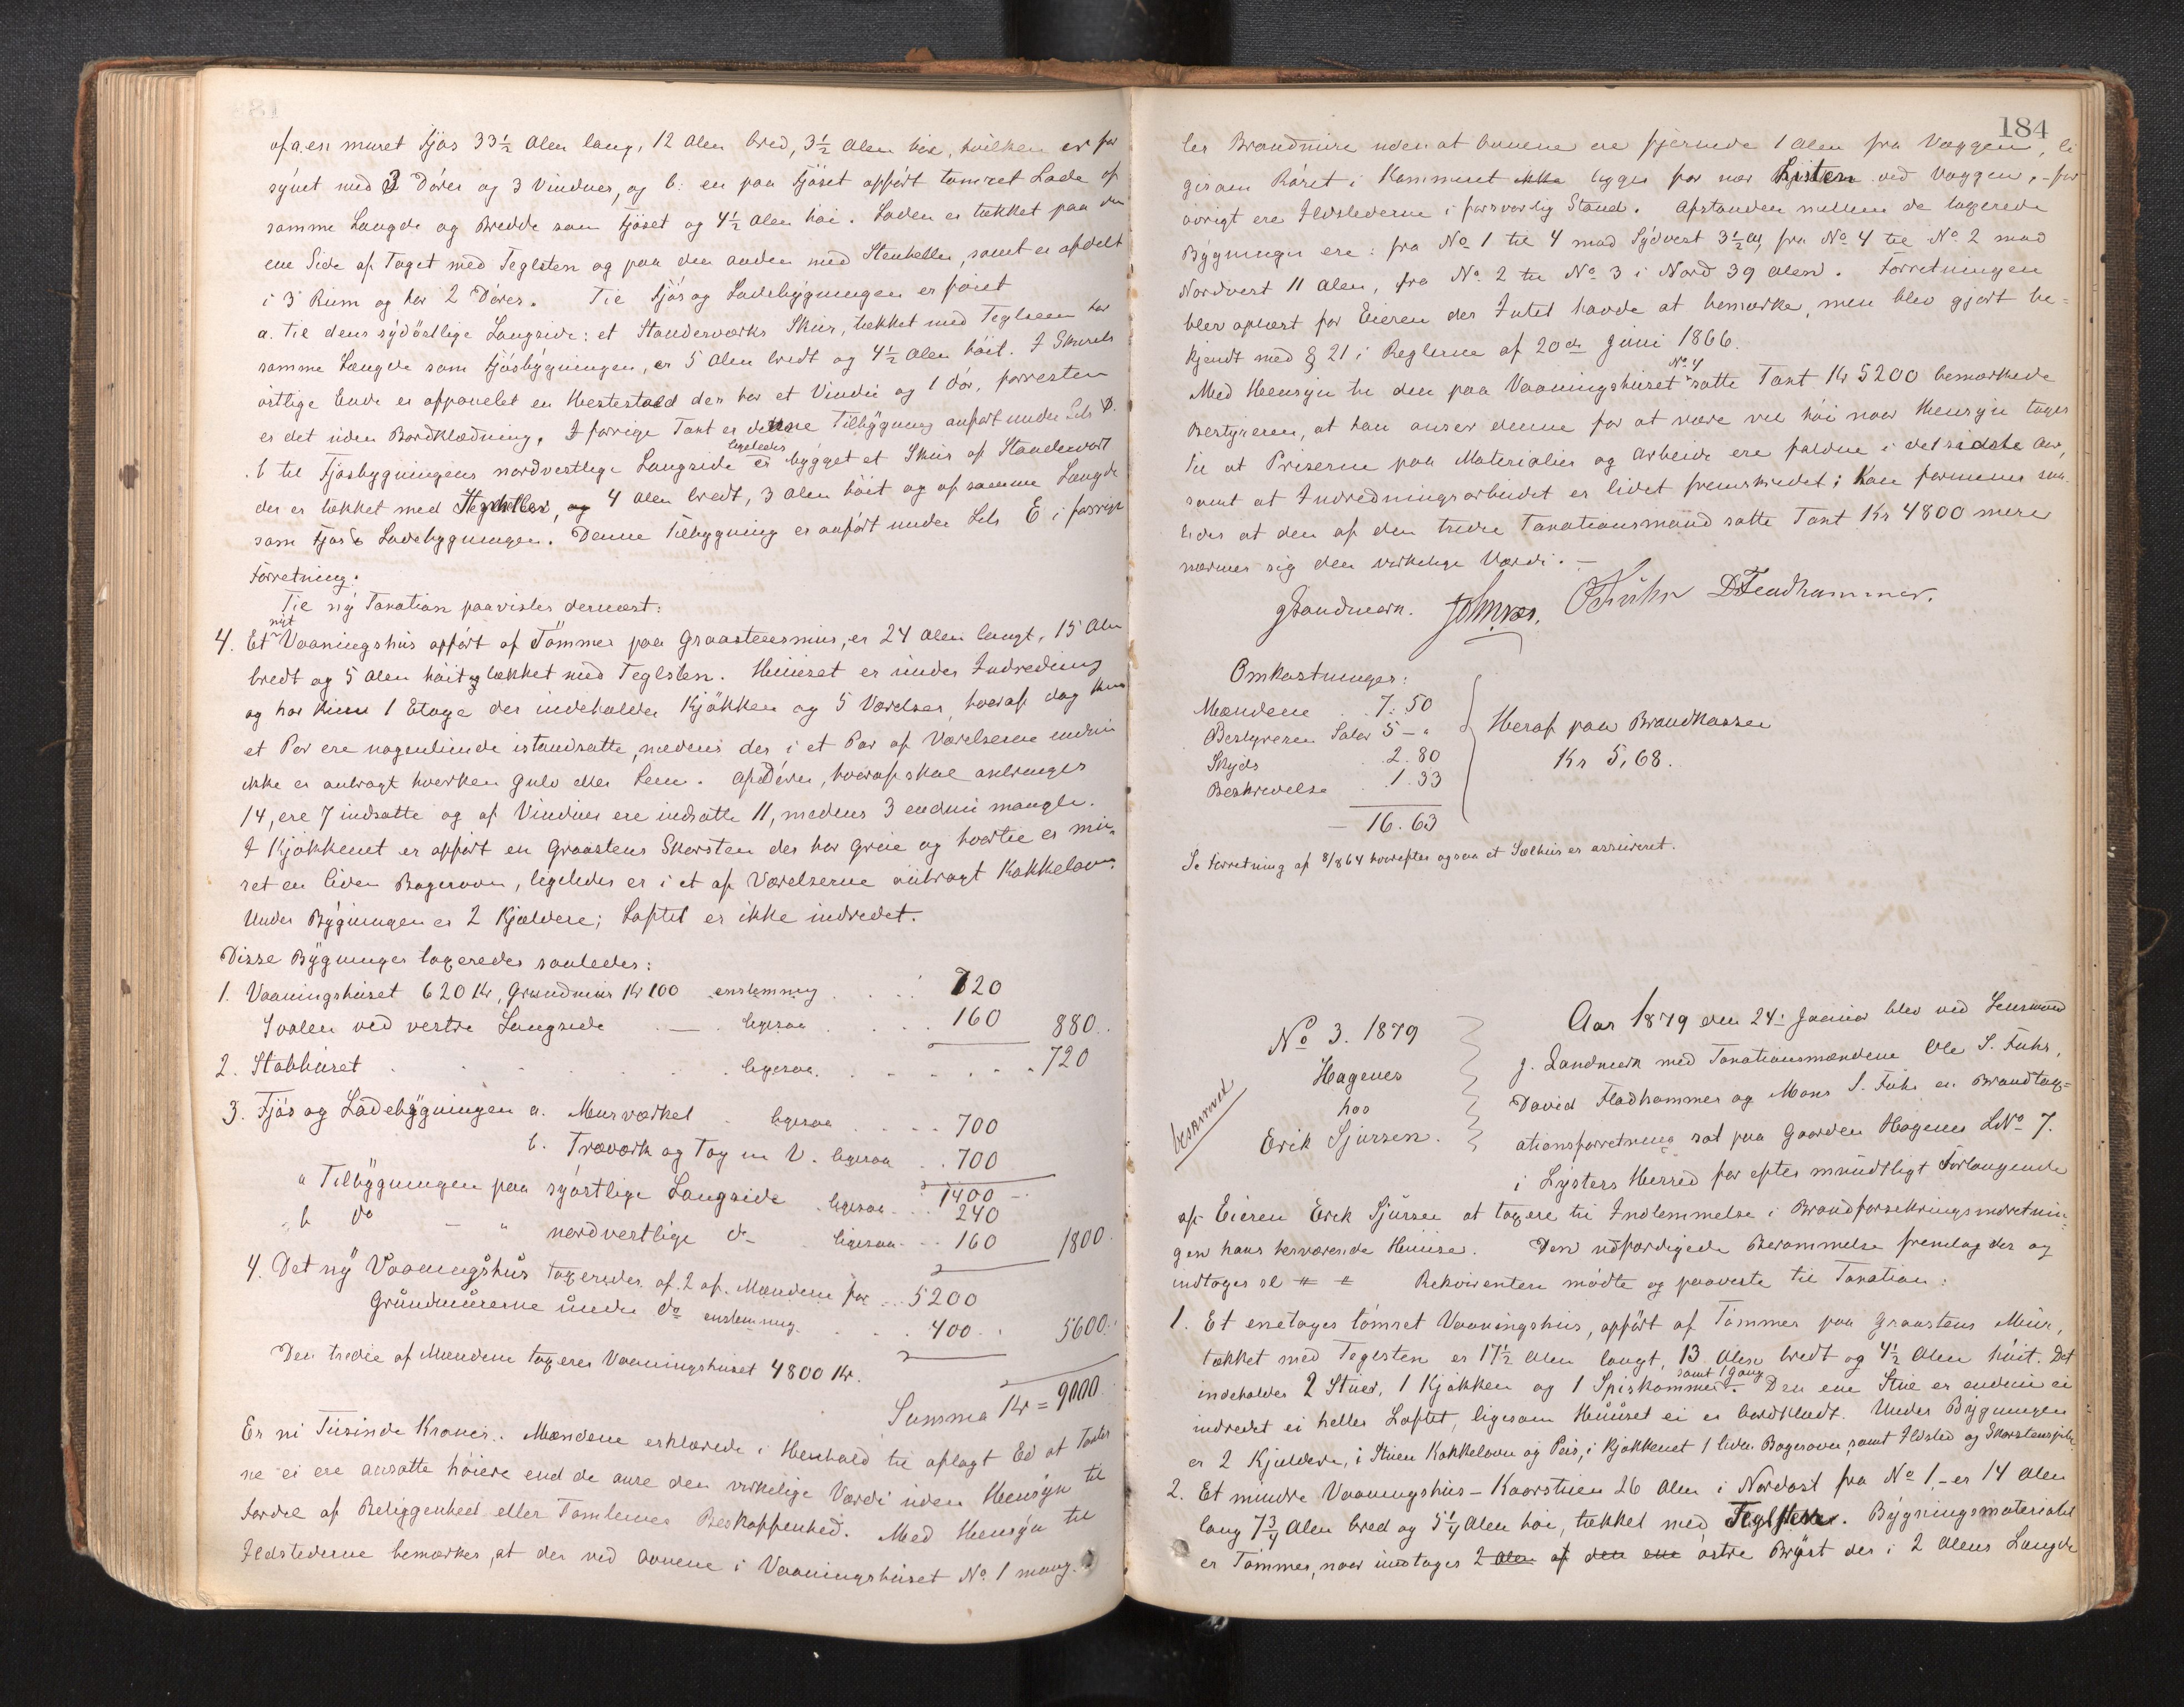 af a. en muret Fjøs 33½ Alen lang, 12 Alen bred, 3½ Alen høi, hvilken er for
synet med 3 Døre og 3 Vinduer, og b: en paa Fjøset opført tømret Lade af
samme Længde og Bredde som Fjøset og 4½ Alen høi. Laden er tækket paa den
ene Side af Taget med Teglsten og paa den anden med Stenheller, samt er afdelt
i 3 Rum og har 2 Døres. Til Fjøs og Ladebygningen er føiet
a. til dens sydøstlige Langside: et Standerværks Skur, tækket med Teglsten har
samme Længde som Fjøsbygningen, er 5 Alen bredt og 4½ Alen høit. I Skurets
østlige Ende er afpanelet en Hestestald der har et Vindu og 1 Dør, forresten
er det uden Bordklædning. I forrige Taxt er denne Tilbygning anført under Litr D.
b til Fjøsbygningens nordvestlige Langside er ligeledes bygget et Skur af Standerværk
der er tækket med Stenheller, 4 Alen bredt, 3 Alen høit og af samme Længde
som Fjøs & Ladebygningen. Denne Tilbygning er anført under Litr E i forrige
Forretning.
Til ny Taxation paavistes dernæst:
4. Et nyt Vaaningshus opført af Tømmer paa Graastensmur, er 24 Alen langt, 15 Alen
bredt og 5 Alen høit og tækket med Teglsten. Huuset er under Indredning
og har kun 1 Etage der indeholder Kjøkken og 5 Værelser, hvoraf dog kun
et Par ere nogenlunde istandsatte, medens der i et Par af Værelserne endnu
ikke er anbragt hverken Gulv eller Lem. Af Døre, hvoraf skal anbringes
14, ere 7 indsatte og af Vinduer ere indsatte 11, medens 3 endnu mangle.
I Kjøkkenet er opført en Graastens Skorsten der har Grue og hvortil er mu-
ret en liden Bagerovn, ligeledes er i et af Værelserne anbragt Kakkelovn.
Under Bygningen er 2 Kjældere; Loftet er ikke indredet.
Disse Bygninger taxeredes saaledes:
1. Vaaningshuset 620 Kr, Grundmur Kr 100 enstemmig . . . 720
Svalen ved vestre Langside — ligesaa . . . 160 880..
2. Stabburet . . . ligesaa. . . . 720
3. Fjøs og Ladebygningen a. Murværket ligesaa . . . 700
b. Træværk og Tag m V. ligesaa . . 700
1400 –
a Tilbygningen paa sydøstlige Langside ligesaa . . 240
" b do — " nordvestlige do ligesaa . . 160 1800.
4. Det ny Vaaningshus taxeredes af 2 af Mændene for . . 5200
Grundmurerne under do enstemmig . . . 400 . . 5600..
Den tredie af Mændene taxerer Vaaningshuset 4800 Kr.
Summa Kr = 9000.
Er ni Tusinde Kroner. Mændene erklærede i Henhold til aflagt Ed at Taxter
ne ei ere ansatte høiere end de anse den virkelige Værdi uden Hensyn til
Fordel af Beliggenhed eller Tomternes Beskaffenhed. Med Hensyn til
Ildstederne bemærkes, at der ved Ovnene i Vaaningshuset No 1 mang-
184
ler Brandmure uden at Ovnene ere fjernede 1 Alen fra Væggen, li
gesom Røret i Kammeret ligger for nær Listen ved Væggen, – for
øvrigt ere Ildstederne i forsvarlig Stand. Afstanden mellem de taxerede
Bygninger ere: fra No 1 til 4 mod Sydvest 3½ Al, fra No 4 til No 2 mod
Nordvest 11 Alen, fra No 2 til No 3 i Nord 39 Alen. Forretningen
blev oplæst for Eieren der Intet havde at bemærke, men blev gjort be-
kjendt med § 21 i Reglerne af 20de Juni 1866.
Med Hensyn til den paa Vaaningshuset No 4 satte Taxt Kr 5200 bemærkede
Bestyreren, at han anser denne for at være vel høi naar Hensyn tages
til at Priserne paa Materialier og Arbeide ere faldne i det sidste Aar,
samt at Indredningsarbeidet er lidet fremskredet; Han formener saa-
ledes at den af den tredie Taxationsmand satte Taxt Kr 4800 mere
nærmer sig den virkelige Værdi. —
J Landmark. O Fuhr D Fladhammer.
Omkostninger:
Mændene . 7.50
Bestyreren Salær 5 – "
Skyds . 2.80
Beskrivelse . 1.33
— 16.63
Heraf paa Brandkassen
Kr 5,68.
Se Forretning af 8/8 64 hvorefter ogsaa et Sælhus er assureret.
No 3. 1879
Hagenes
hos
Erik Sjursen.
beskrevet
Aar 1879 den 24de Januar blev ved Lensmand
J. Landmark med Taxationsmændene Ole S. Fuhr,
David Fladhammer og Mons S. Fuhr en Brandtax-
ationsforretning sat paa Gaarden Hagenes LNo 7.
i Lysters Herred for efter mundtligt Forlangende
af Eieren Erik Sjursen at taxere til Indlemmelse i Brandforsikringsindretnin-
gen hans herværende Huuse. Den udfærdigede Berammelse fremlagdes og
indtages sl Rekvirenten mødte og paaviste til Taxation:
1. Et enetages tømret Vaaningshus, opført af Tømmer paa Graastens Muur,
tækket med Teglsten er 17½ Alen langt, 13 Alen bredt og 4½ Alen høit. Det
indeholder 2 Stuer, 1 Kjøkken og 1 Spiskammer samt 1 Gang. Den ene Stue er endnu ei
indredet ei heller Loftet, ligesom Huuset ei er bordklædt. Under Bygningen
er 2 Kjeldere, i Stuen Kakkelovn og Peis, i Kjøkkenet 1 liden Bagerovn, samt Ildsted og Skorstenspibe
2. Et mindre Vaaningshus – Kaarstuen 26 Alen i Nordost fra No 1, – er 14 Alen
lang 7¾ Alen bred og 5¼ Alen høi, tækket med Teglsten. Bygningsmaterialet
er Tømmer, naar undtages 2 Alen af den ene østre Bryst der i 2 Alens Længde